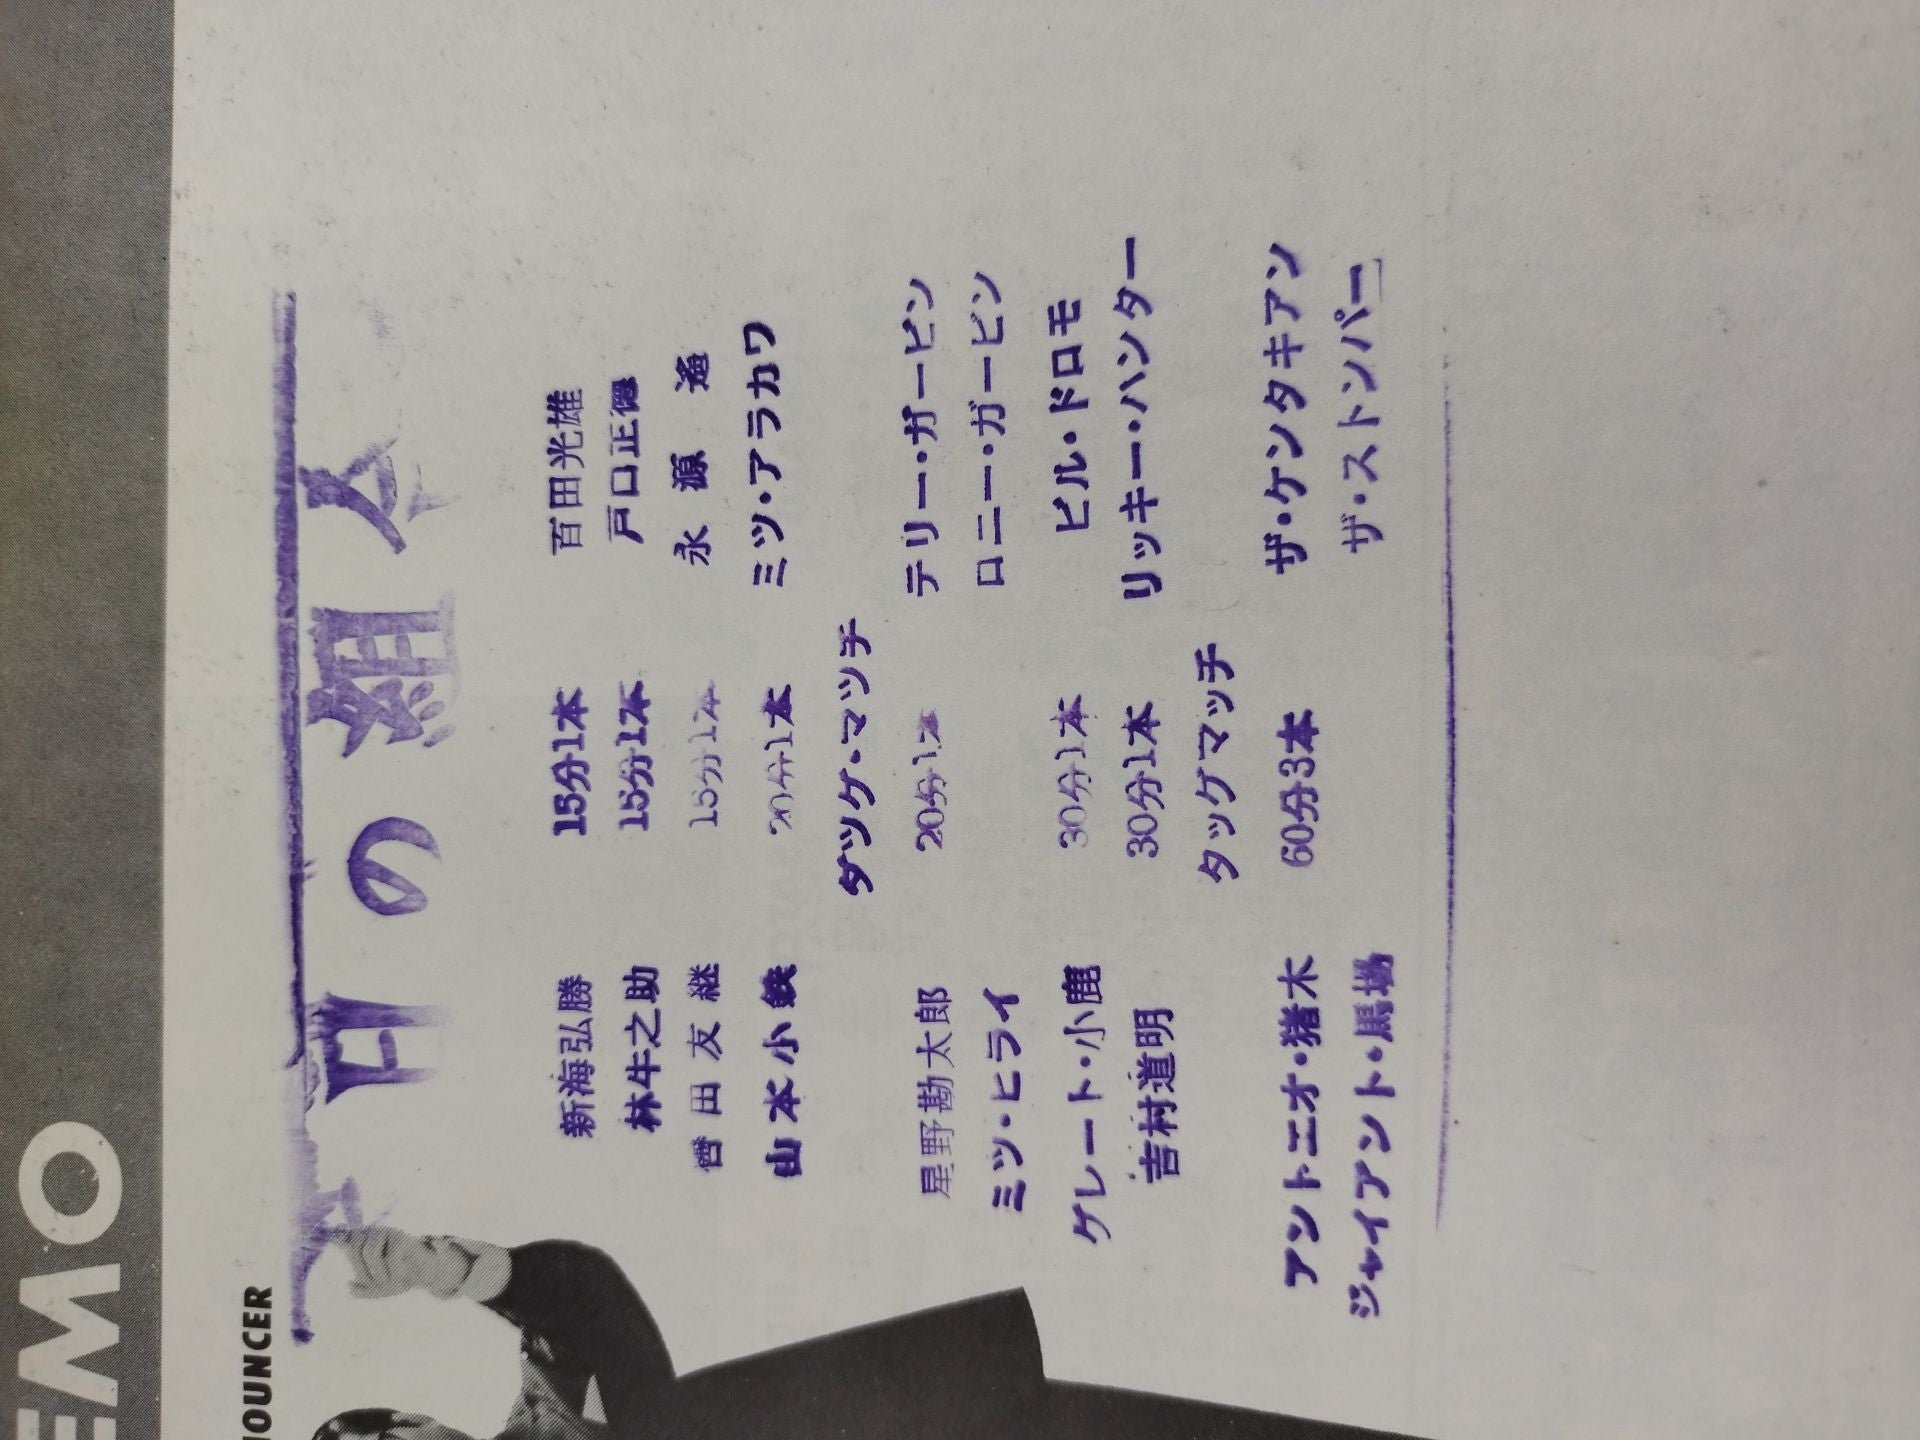 EMO
NOUNCER
今日の組合
新海弘勝 15分1本 百田光雄
林牛之助 15分1本 戸口正徳
曽田友継 15分1本 永源遙
山本小鉄 20分1本 ミツ・アラカワ
タッグ・マッチ
星野勘太郎 20分1本 テリー・ガービン
ミツ・ヒライ ロニー・ガービン
グレート・小鹿 30分1本 ビル・ドロモ
吉村道明 30分1本 リッキー・ハンター
タッグマッチ
アントニオ・猪木 60分3本 ザ・ケンタキアン
ジャイアント・馬場 ザ・ストンパー